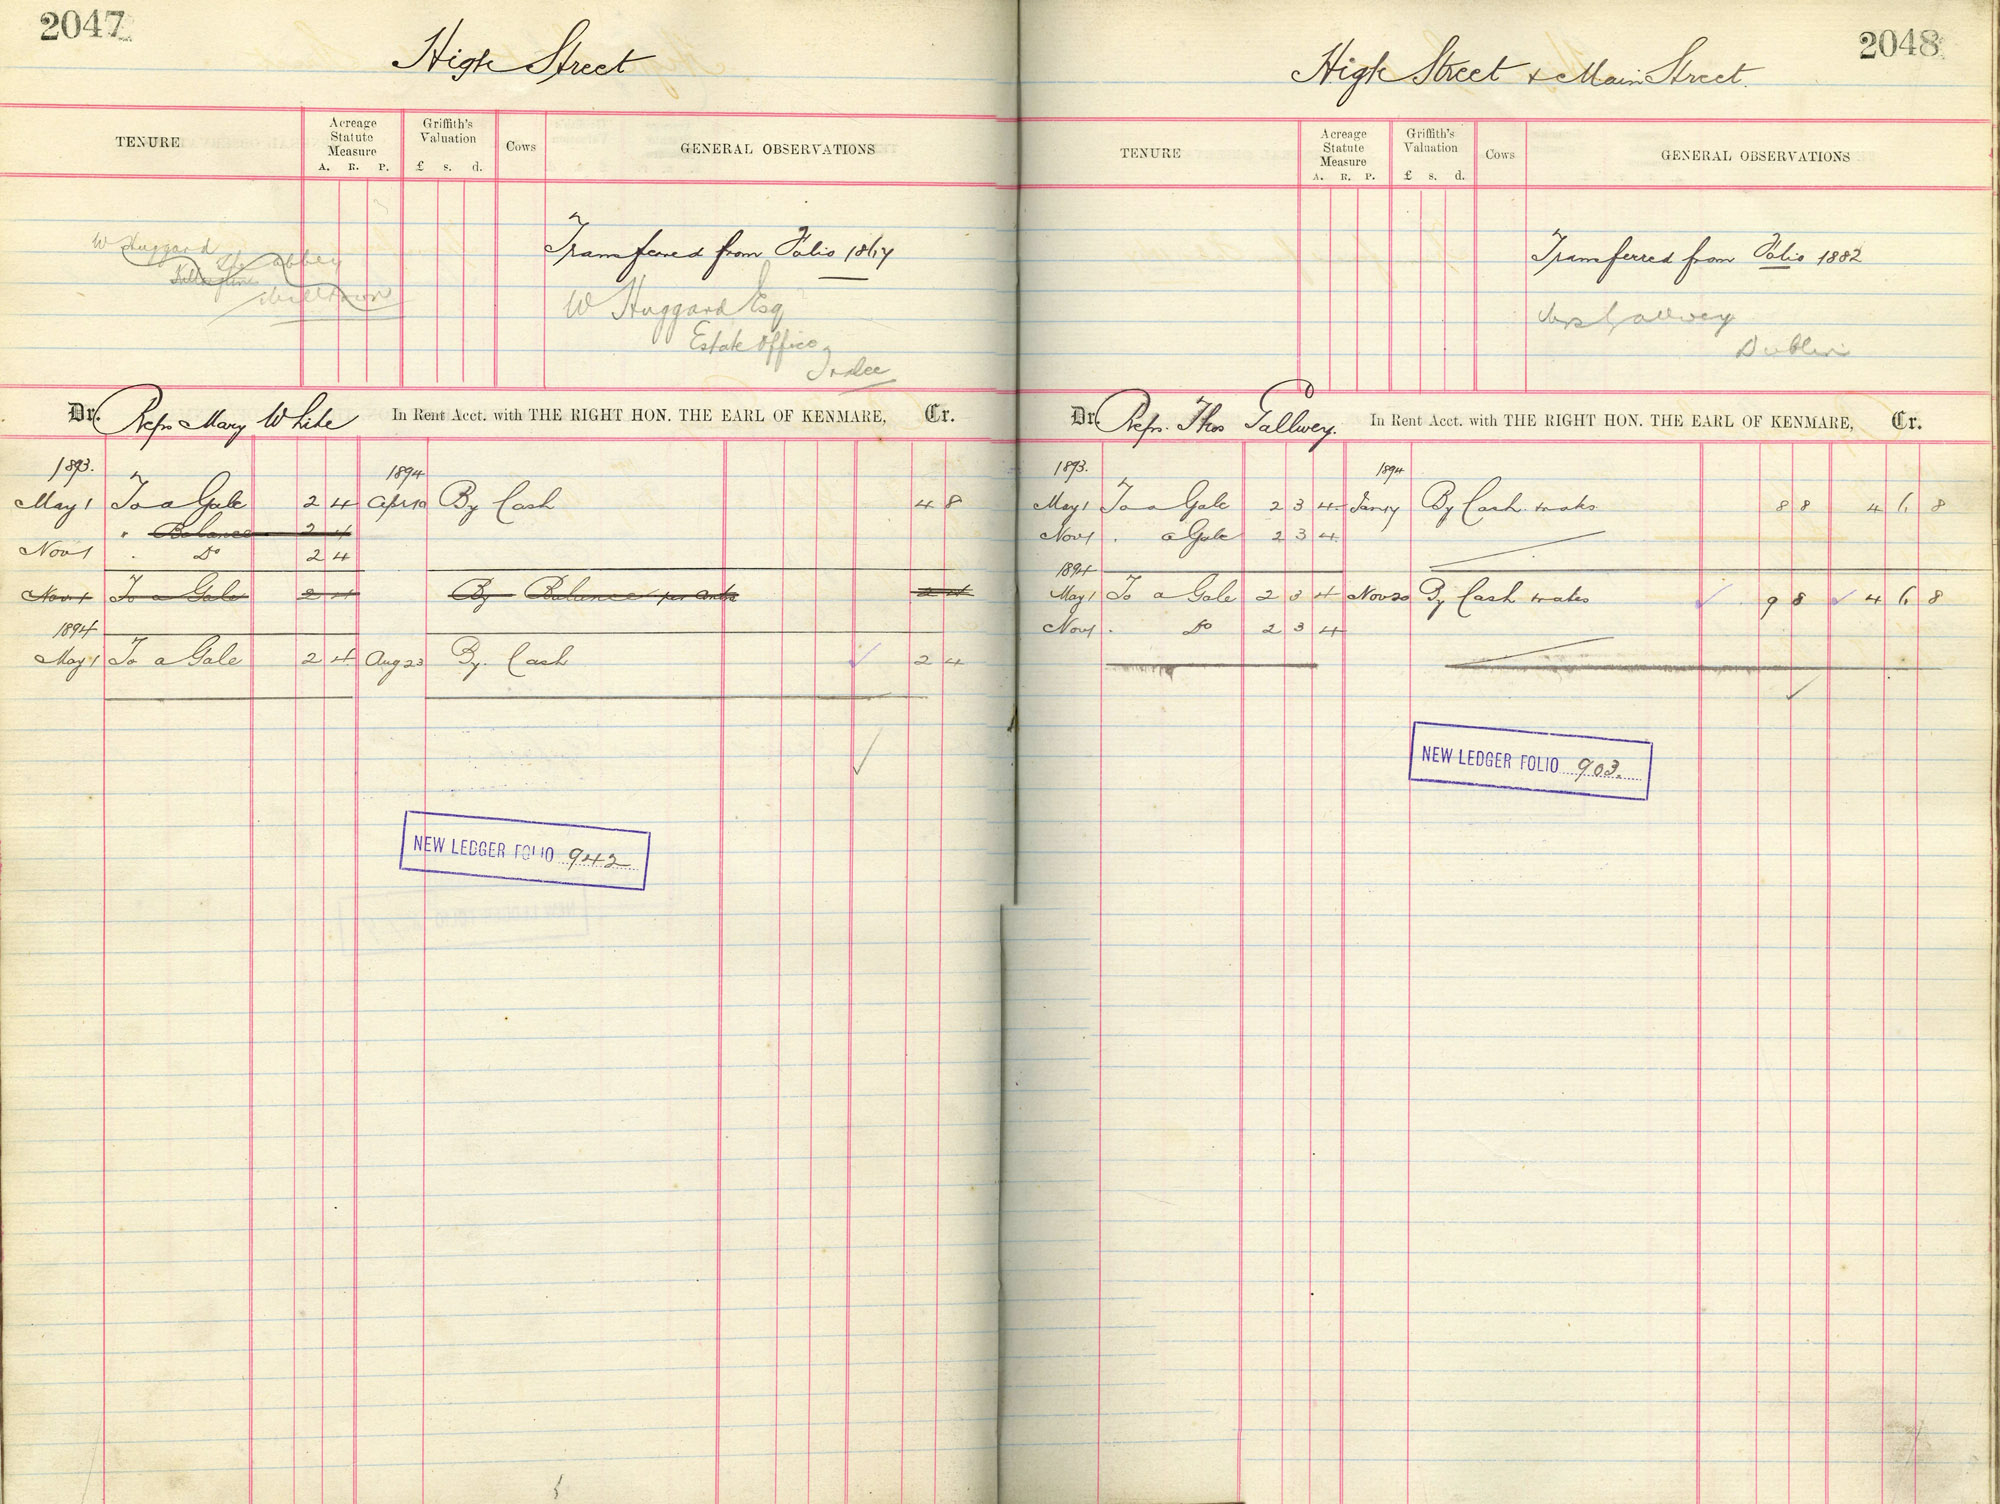 2047
High Street
TENURE
Acreage Statute Measure A. R. P.
Griffith's Valuation £ s. d.
Cows
GENERAL OBSERVATIONS
W Huggard
The Abbey
Milltown
Transferred from Folio 1864
W Huggard Esq
Estate Office
Tralee
Dr. Reps Mary White In Rent Acct. with THE RIGHT HON. THE EARL OF KENMARE, Cr.
1893. 1894
May 1 To a Gale 2 4 Apr 10 By Cash 4 8
" Balance 2 4
Nov 1 . Do 2 4
Nov 1 To a Gale 2 4 By Balance per contra 2 4
1894
May 1 To a Gale 2 4 Aug 23 By Cash 2 4
NEW LEDGER FOLIO 942
2048
High Street & Main Street.
TENURE
Acreage Statute Measure A. R. P.
Griffith's Valuation £ s. d.
Cows
GENERAL OBSERVATIONS
Transferred from Folio 1882
Gallwey
Dublin
Dr. Reps. Thos Gallwey. In Rent Acct. with THE RIGHT HON. THE EARL OF KENMARE, Cr.
1893. 1894
May 1 To a Gale 2 3 4 Jan 17 By Cash & rates 8 8 4 6 8
Nov 1 . a Gale 2 3 4
1894
May 1 To a Gale 2 3 4 Nov 20 By Cash & rates 9 8 4 6 8
Nov 1 . Do 2 3 4
NEW LEDGER FOLIO 903.